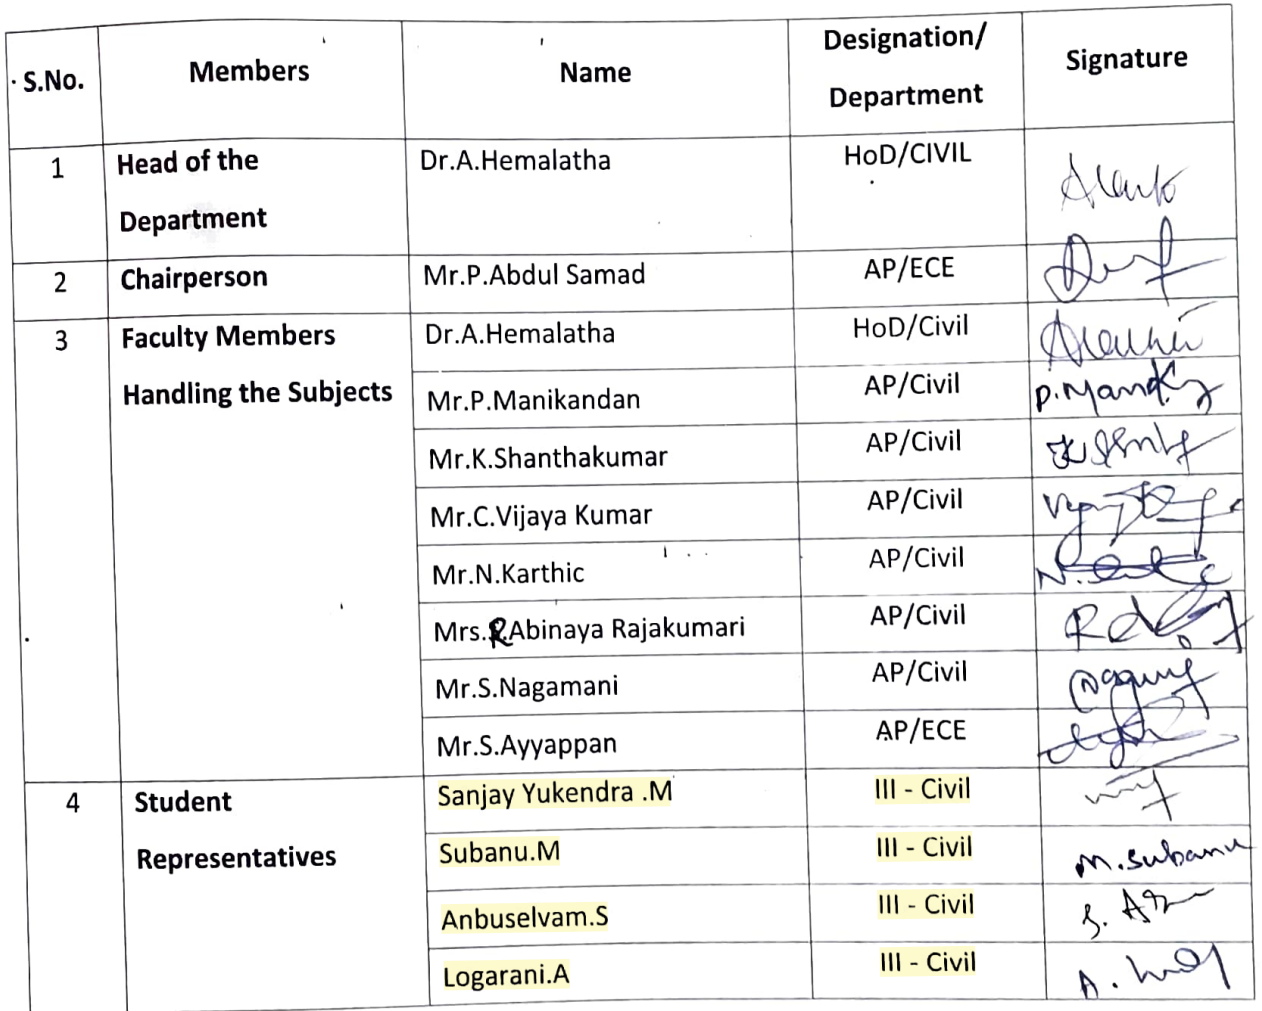 S.No. Members Name Designation/ Department Signature
1 Head of the Department Dr.A.Hemalatha HoD/CIVIL
2 Chairperson Mr.P.Abdul Samad AP/ECE
3 Faculty Members Handling the Subjects Dr.A.Hemalatha HoD/Civil
Mr.P.Manikandan AP/Civil
Mr.K.Shanthakumar AP/Civil
Mr.C.Vijaya Kumar AP/Civil
Mr.N.Karthic AP/Civil
Mrs.R.Abinaya Rajakumari AP/Civil
Mr.S.Nagamani AP/Civil
Mr.S.Ayyappan AP/ECE
4 Student Representatives Sanjay Yukendra .M III - Civil
Subanu.M III - Civil M.Subanu
Anbuselvam.S III - Civil
Logarani.A III - Civil